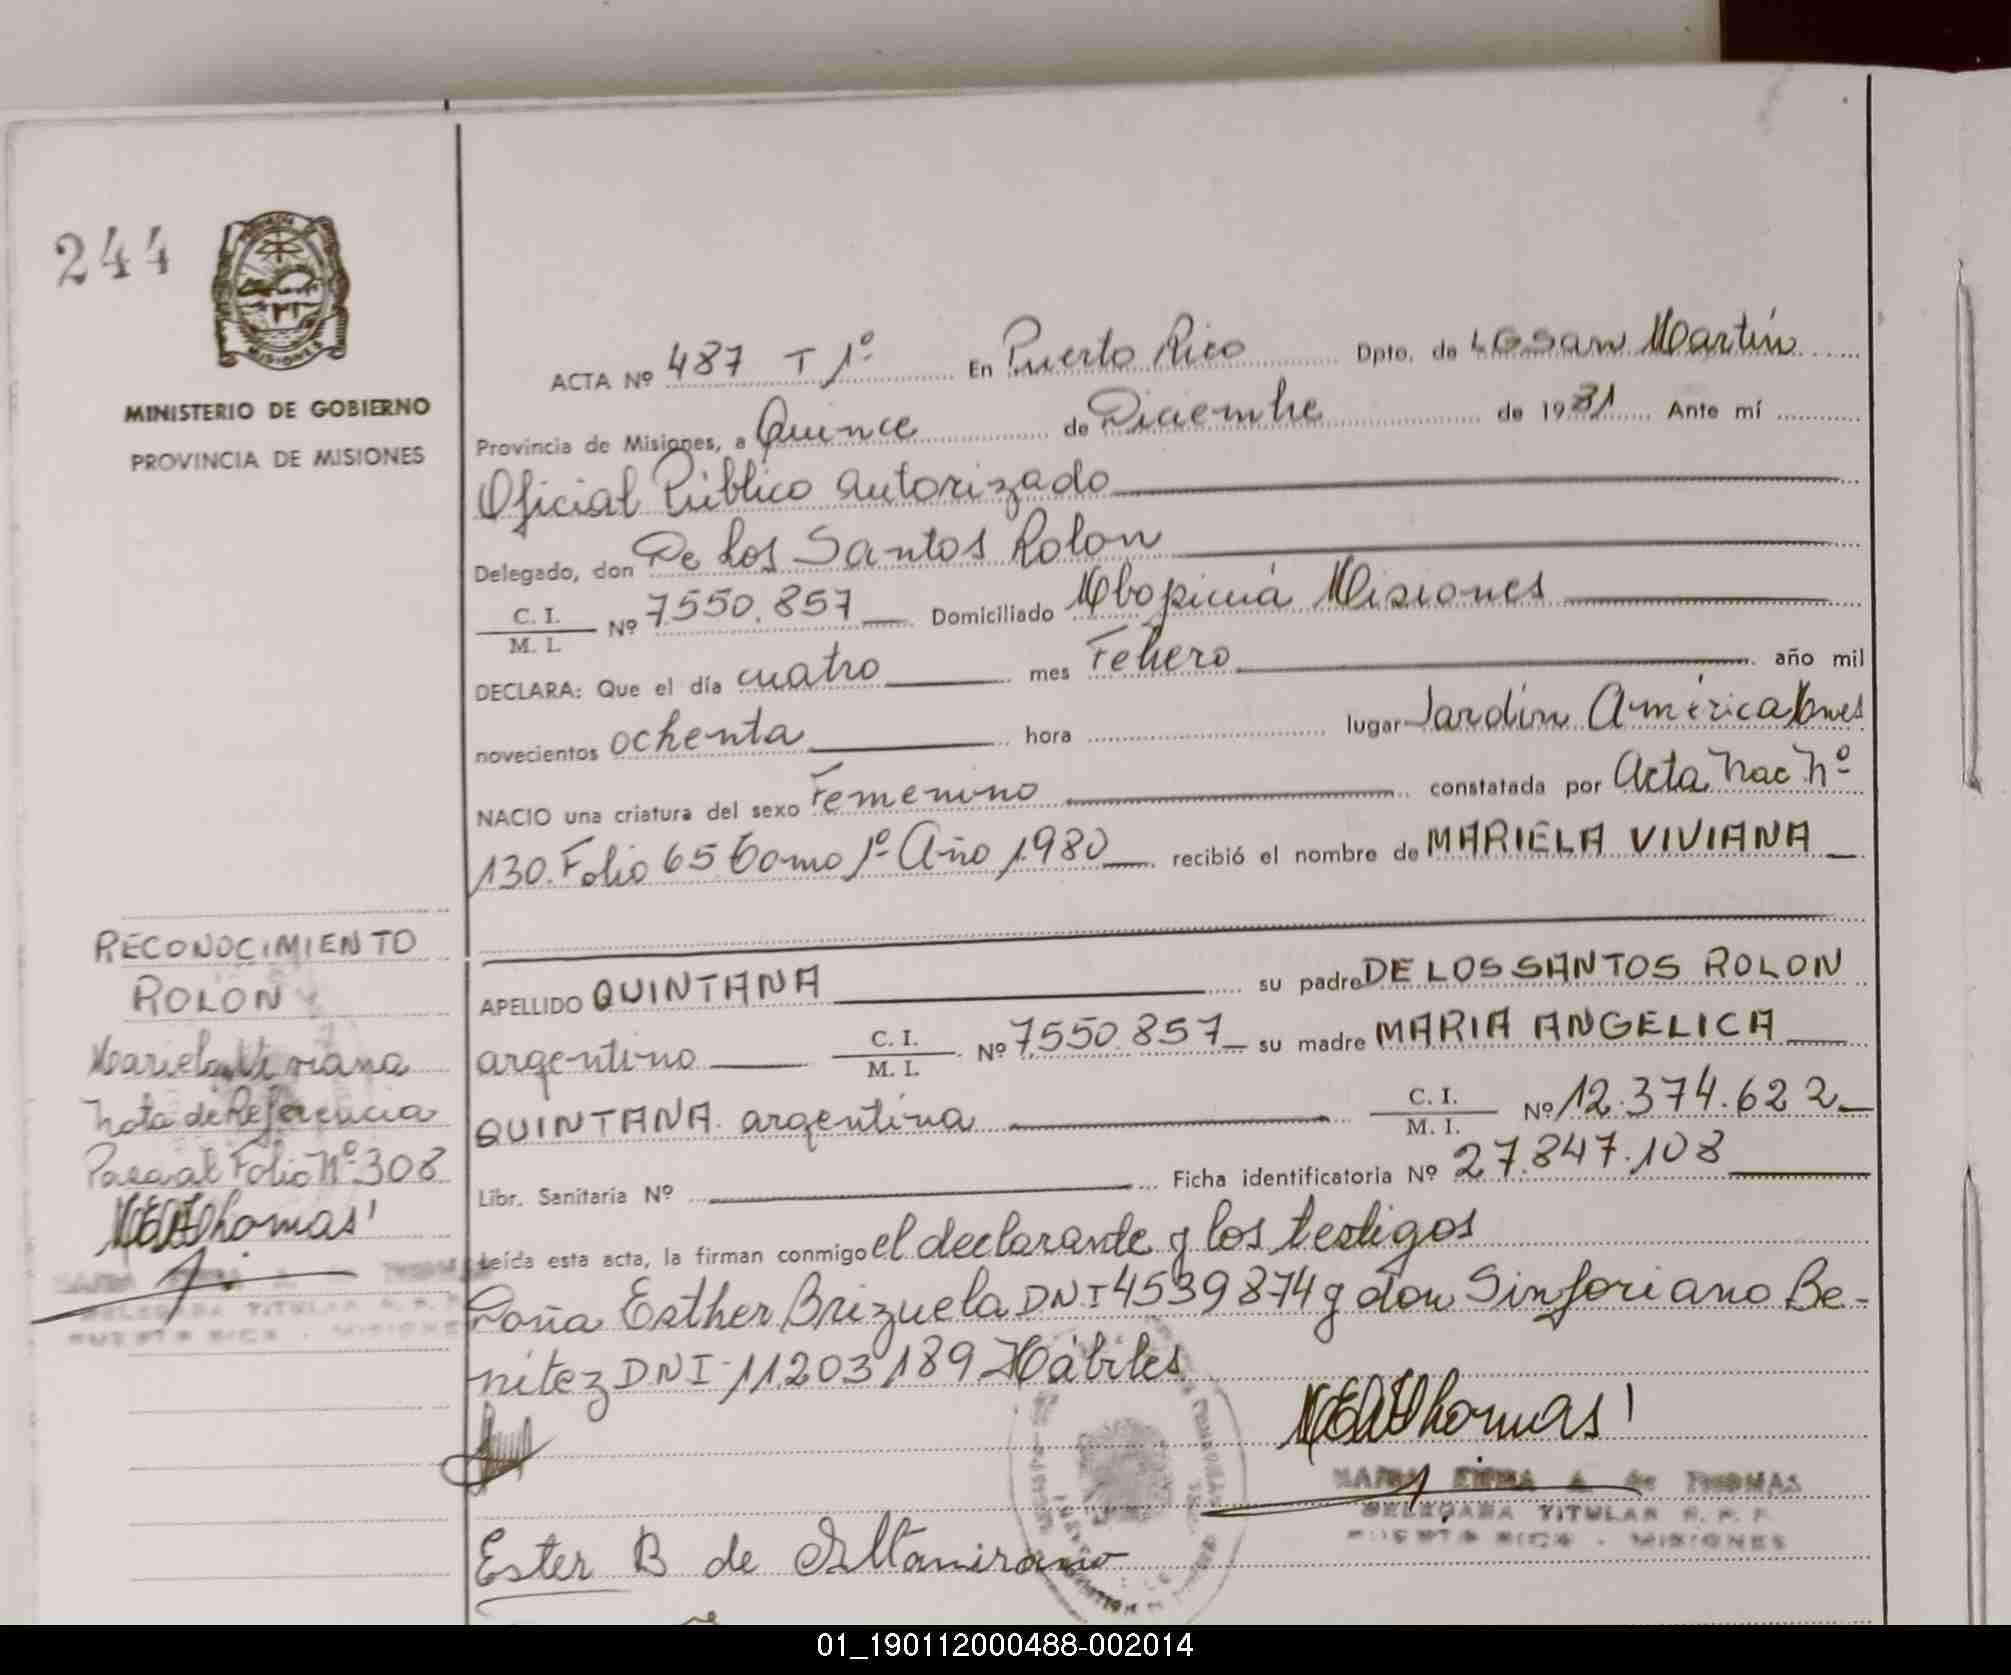 244
MISIONES
MINISTERIO DE GOBIERNO
PROVINCIA DE MISIONES
ACTA Nº 487 T 1º En Puerto Rico Dpto. de LG San Martín
Provincia de Misiones, a Quince de Diciembre de 1981 Ante mí
Oficial Público autorizado
Delegado, don De Los Santos Rolon
C. I.
M. I. Nº 7.550.857 Domiciliado Mbopicuá Misiones
DECLARA: Que el día cuatro mes Febrero año mil
novecientos ochenta hora lugar Jardín América Mnes
NACIO una criatura del sexo Femenino constatada por Acta Nac Nº
130 Folio 65 Tomo 1º Año 1980 recibió el nombre de MARIELA VIVIANA
APELLIDO QUINTANA su padre DE LOS SANTOS ROLON
argentino C. I.
M. I. Nº 7.550.857 su madre MARIA ANGELICA
QUINTANA argentina C. I.
M. I. Nº 12.374.622
Libr. Sanitaria Nº Ficha identificatoria Nº 27.847.108
Leída esta acta, la firman conmigo el declarante y los testigos
Doña Esther Brizuela DNI 4539874 y don Sinforiano Be-
nítez DNI 11.203189 Hábiles
Ester B de Altamirano
MEAThomas
A. de THOMAS
DELEGADA TITULAR R. P. P.
PUERTO RICO - MISIONES
RECONOCIMIENTO
ROLON
Mariela Viviana
Nota de Referencia
Pasa al Folio Nº 308
MEAThomas
DELEGADA TITULAR R. P. P.
PUERTO RICO - MISIONES
01_190112000488-002014